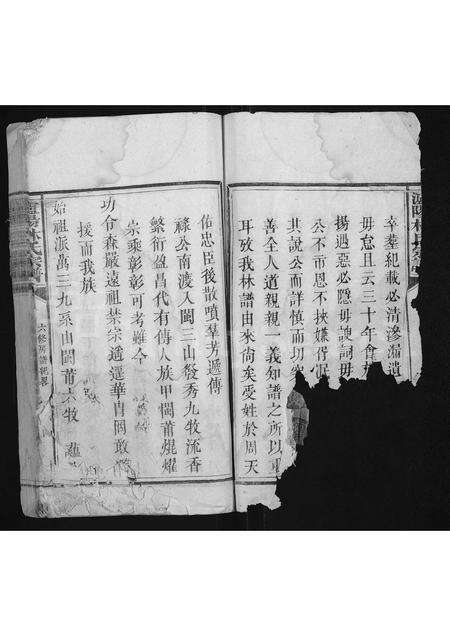 幸羣紀載必清滲漏遺
毋怠且云三十年會
揚遏惡必隱毋諛詞毋
公不市恩不挾嫌得
其說公而詳慎而切
善全人道親親一義知譜之所以
耳致我林譜由來尙矣受姓於周天
佑忠臣後散噴羣芳遞傳
祿公南渡入閩三山發秀九牧流香
繁衍盈昌代有傳人族甲閩莆焜燿
宗乘彰彰可考難今
功令森嚴遠祖禁宗遥遥華冑罔敢
援而我族
始祖派萬三九系由閩莆六牧
六修房譜